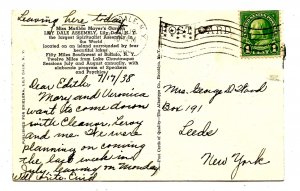 Leaving here today
Miss Matilda Mayer's Cottage
LILY DALE ASSEMBLY, Lily Dale, N. Y.
the largest Spiritualist Assembly in
the World
located on an island surrounded by four
beautiful lakes
Fifty Miles Southwest of Buffalo, N. Y.
Ten Miles from Lake Chautauqua
Sessions July and August annually, with
elaborate programs of Speakers
and Psychics
7/17/38
Dear Edith:
Mary and Veronica
want to come down
with Eleanor, Leroy
and me. We were
planning on coming
the last week in
July leaving on Monday
Will Write
POST CARD
Mrs. George D Stand
Box 191
Leeds
New York